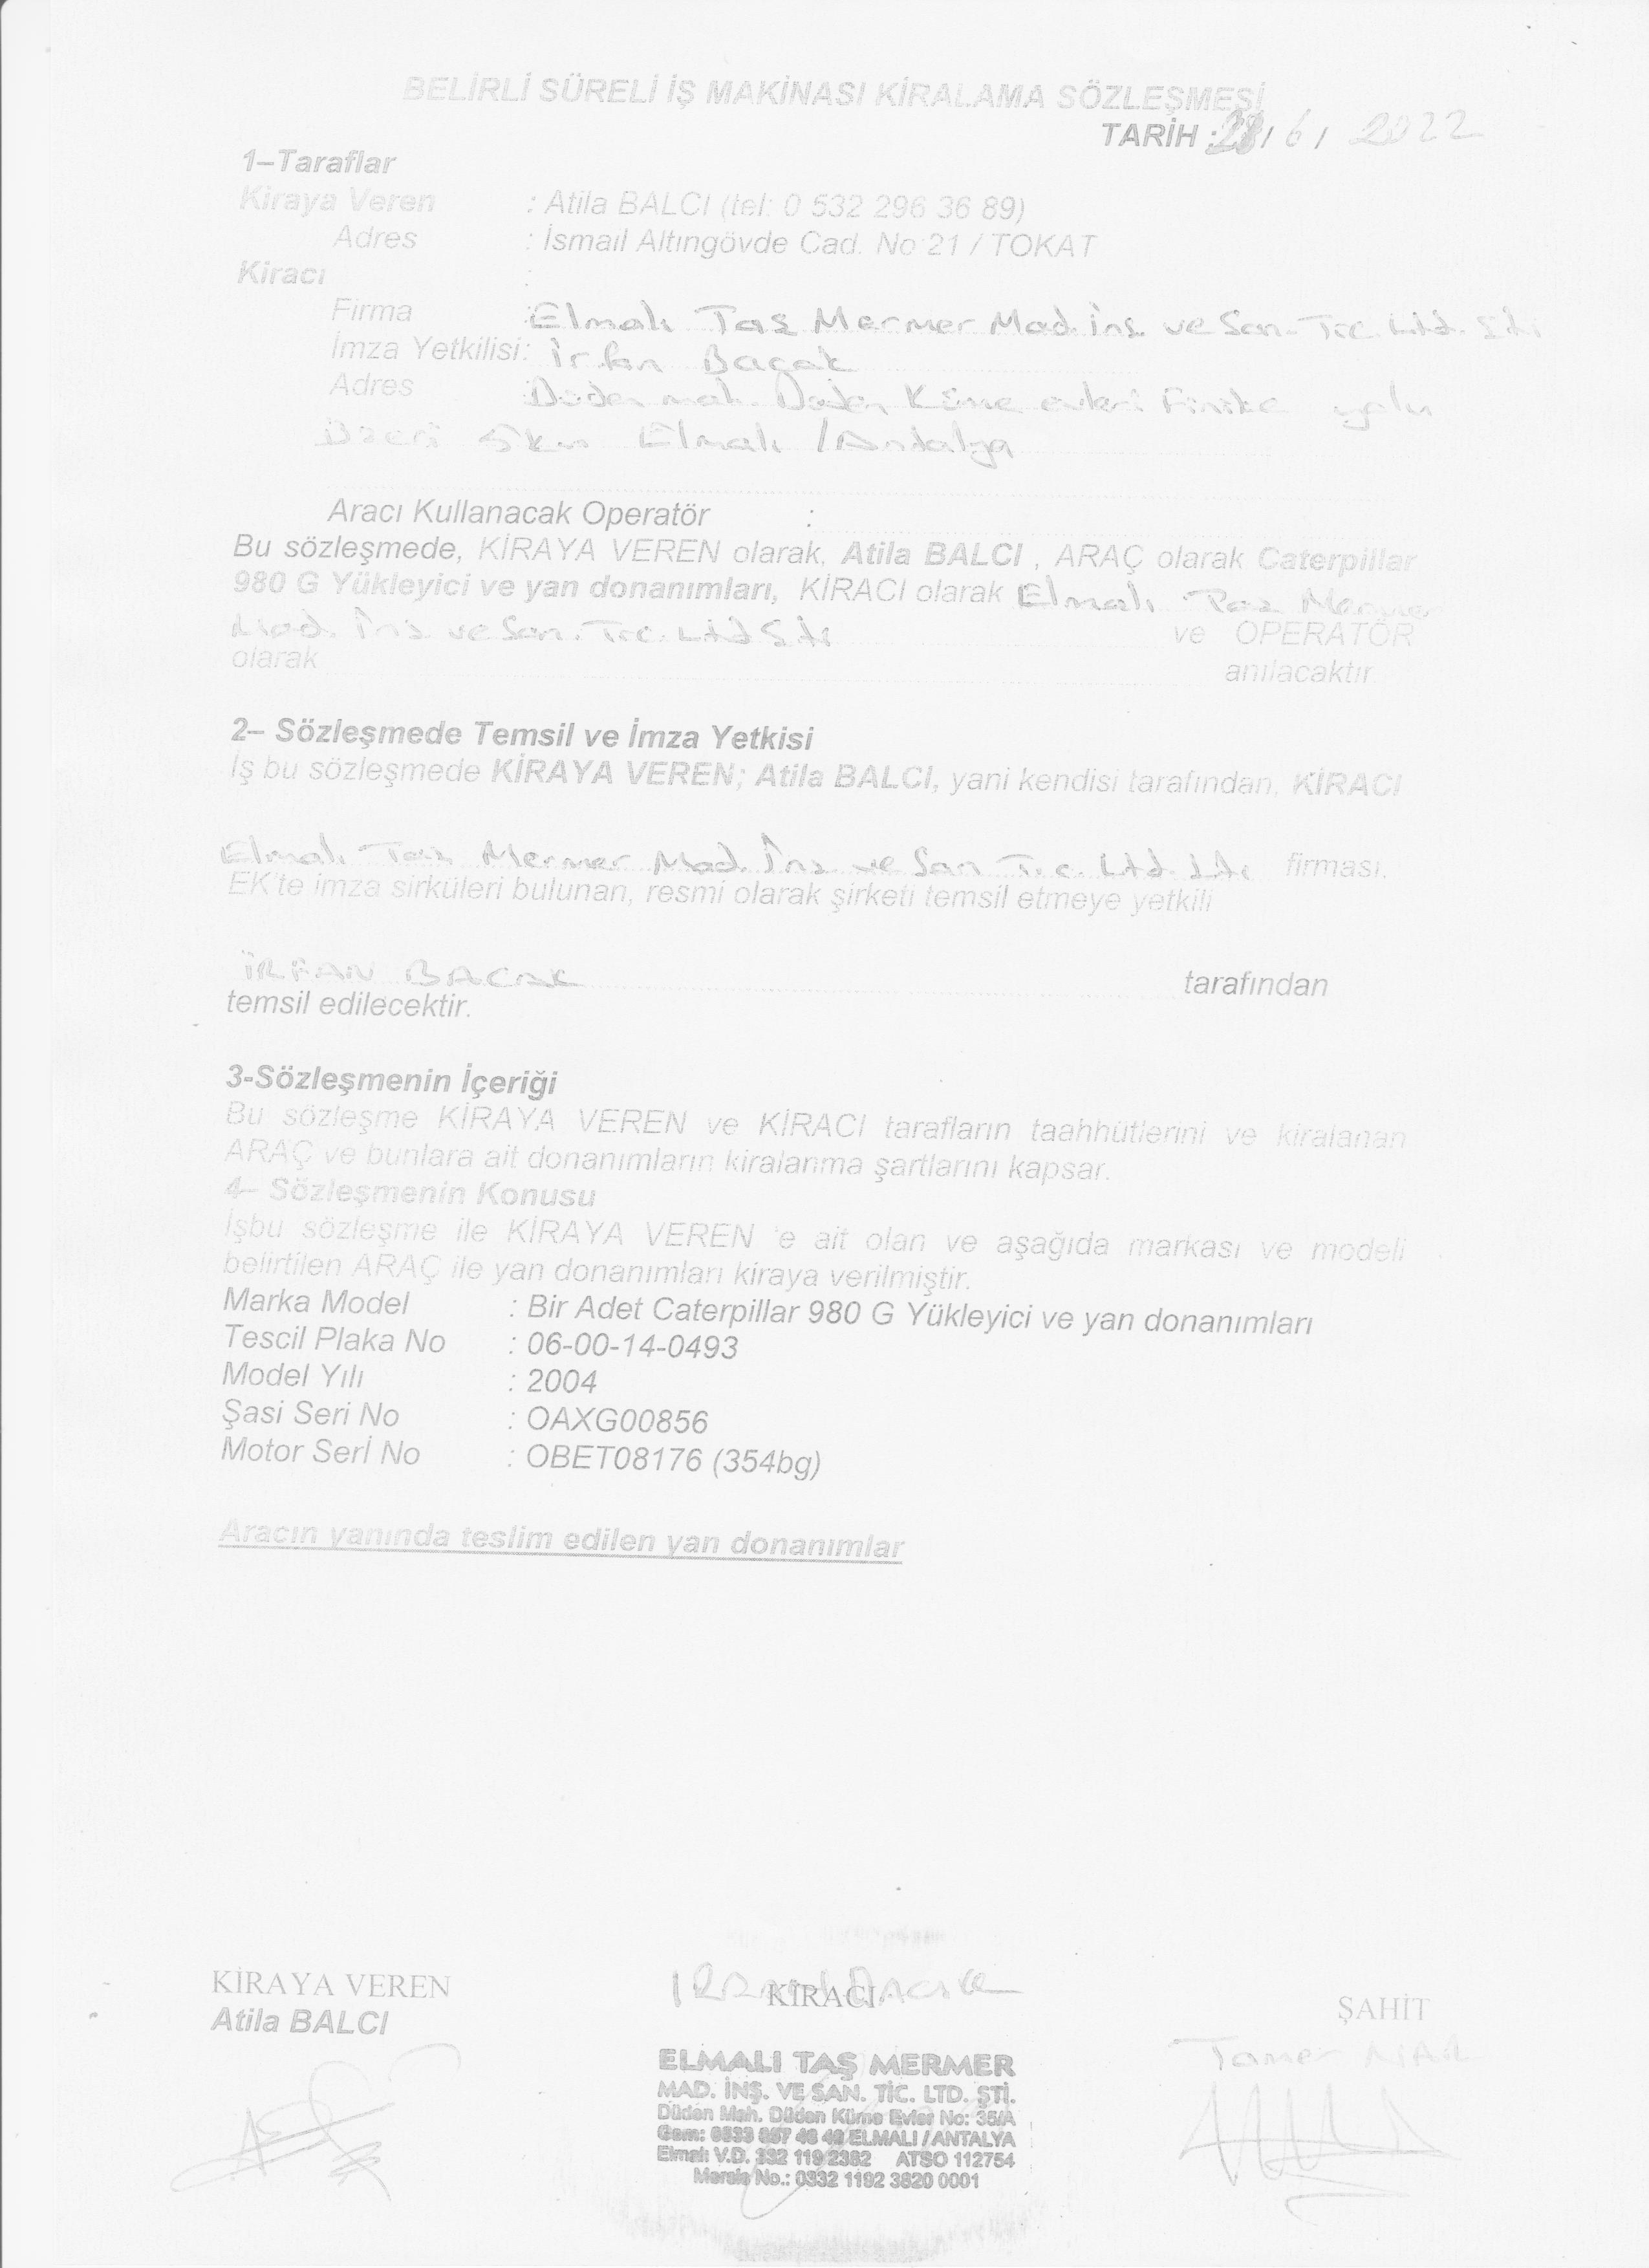 BELİRLİ SÜRELİ İŞ MAKİNASI KİRALAMA SÖZLEŞMESİ
TARİH : / 6 / 2022
1–Taraflar
Kiraya Veren : Atila BALCI (tel: 0 532 296 36 89)
Adres : İsmail Altıngövde Cad. No 21 / TOKAT
Kiracı :
Firma : Elmalı Taş Mermer Mad. İnş. ve San. Tic. Ltd. Şti.
İmza Yetkilisi: İrfan Bacak
Adres : Düden mah. Düden Küme evleri Finike yolu
Üzeri 5km Elmalı / Antalya
Aracı Kullanacak Operatör :
Bu sözleşmede, KİRAYA VEREN olarak, Atila BALCI , ARAÇ olarak Caterpillar
980 G Yükleyici ve yan donanımları, KİRACI olarak Elmalı Taş Mermer
Mad. İnş. ve San. Tic. Ltd Şti. ve OPERATÖR
olarak anılacaktır.
2– Sözleşmede Temsil ve İmza Yetkisi
İş bu sözleşmede KİRAYA VEREN; Atila BALCI, yani kendisi tarafından, KİRACI
Elmalı Taş Mermer Mad. İnş. ve San Tic. Ltd. Şti. firması,
EK'te imza sirküleri bulunan, resmi olarak şirketi temsil etmeye yetkili
İRFAN BACAK tarafından
temsil edilecektir.
3-Sözleşmenin İçeriği
Bu sözleşme KİRAYA VEREN ve KİRACI tarafların taahhütlerini ve kiralanan
ARAÇ ve bunlara ait donanımların kiralanma şartlarını kapsar.
4– Sözleşmenin Konusu
İşbu sözleşme ile KİRAYA VEREN 'e ait olan ve aşağıda markası ve modeli
belirtilen ARAÇ ile yan donanımları kiraya verilmiştir.
Marka Model : Bir Adet Caterpillar 980 G Yükleyici ve yan donanımları
Tescil Plaka No : 06-00-14-0493
Model Yılı : 2004
Şasi Seri No : OAXG00856
Motor Serİ No : OBET08176 (354bg)
Aracın yanında teslim edilen yan donanımlar
KİRAYA VEREN
Atila BALCI
KİRACI
ELMALI TAŞ MERMER
MAD. İNŞ. VE SAN. TİC. LTD. ŞTİ.
Düden Mah. Düden Küme Evler No: 35/A
Gsm: 0533 ELMALI / ANTALYA
Elmalı V.D. 332 119 2382 ATSO 112754
Mersis No.: 0332 1192 3820 0001
ŞAHİT
Tamer